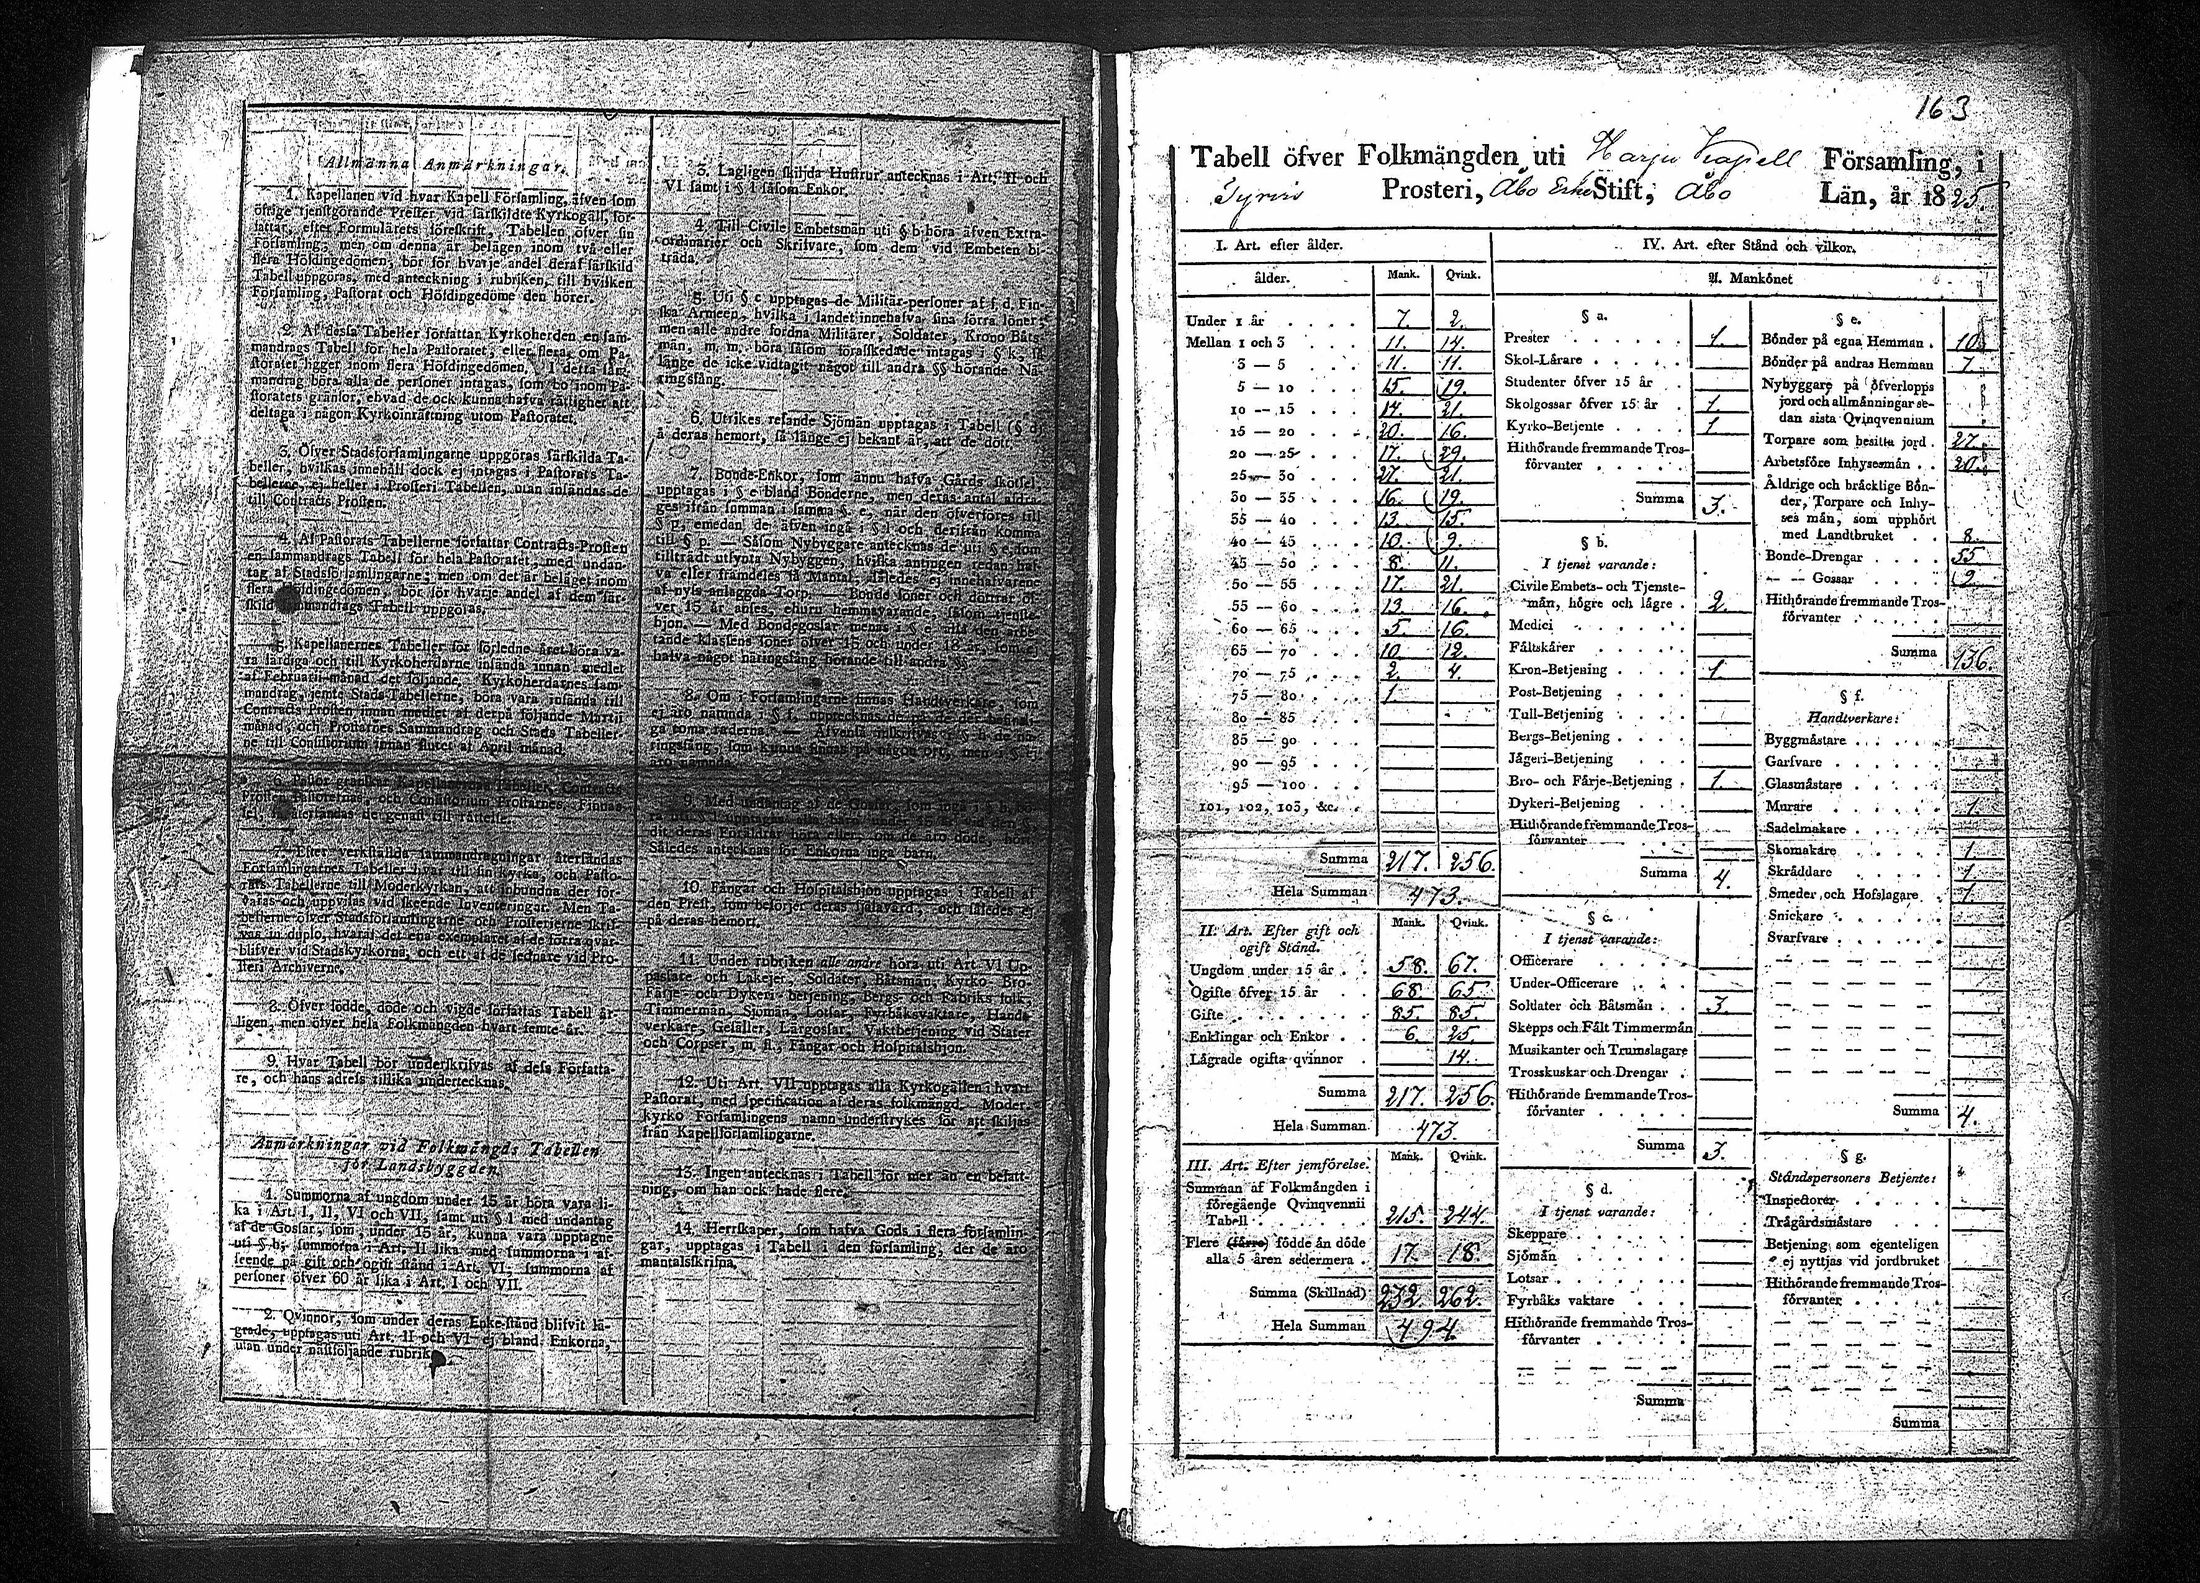 Allmänna Anmärkningar.
1. Kapellanen vid hvar Kapell Församling, äfven som
öfrige tjenstgörande Prester vid särskildte Kyrkogäll, för-
fattar, efter Formulärets föreskrift, Tabellen öfver sin
Församling; men om denna är belägen inom två eller
flera Höfdingedömen, bör för hvarje andel deraf särskild
Tabell uppgöras, med anteckning i rubriken, till hvilken
Församling, Pastorat och Höfdingedöme den hörer.
2. Af dessa Tabeller författar Kyrkoherden en sam-
mandrags Tabell för hela Pastoratet, eller flera, om Pa-
storatet ligger inom flera Höfdingedömen. I detta sam-
mandrag böra alla de personer intagas, som bo inom Pa-
storatets gränsor, ehvad de ock kunna hafva rättighet att
deltaga i någon Kyrkoinrättning utom Pastoratet.
3. Öfver Stadsförsamlingarne uppgöras särskilda Ta-
beller, hvilkas innehåll dock ej intages i Pastorats Ta-
bellerne, ej heller i Prosteri Tabellen, utan insändas de
till Contracts Prosten.
4. Af Pastorats Tabellerne författar Contracts-Prosten
en sammandrags Tabell för hela Pastoratet, med undan-
tag af Stadsförsamlingarne; men om det är beläget inom
flera Höfdingedömen, bör för hvarje andel af dem sär-
skild sammandrags Tabell uppgöras.
5. Kapellanernes Tabeller för förledne året böra va-
ra färdiga och till Kyrkoherdarne insända innan medlet
af Februarii månad det följande. Kyrkoherdarnes sam-
mandrag, jemte Stads-Tabellerne, böra vara insända till
Contracts Prosten innan medlet af derpå följande Martii
månad, och Prostarnes Sammandrag och Stads Tabeller-
ne till Consistorium innan slutet af April månad.
6. Pastor granskar Kapellanernas Tabeller, Contracts
7. Efter verkställda sammandragningar återsändas
Församlingarnes Tabeller hvar till sin kyrka, och Pasto-
rats Tabellerne till Moderkyrkan, att inbundna der för-
varas och uppvisas vid skeende Inventeringar. Men Ta-
bellerne öfver Stadsförsamlingarne och Prosterierne skrif-
vas in duplo, hvaraf det ena exemplaret af de förra qvar-
blifver vid Stadskyrkorna, och ett af de sednare vid Pro-
steri Archiverne.
8. Öfver födde, döde och vigde författas Tabell år-
ligen, men öfver hela Folkmängden hvart femte år.
9. Hvar Tabell bör underskrifvas af dess Författa-
re, och hans adress tillika undertecknas.
Anmärkningar vid Folkmängds Tabellen
för Landsbyggden.
1. Summorna af ungdom under 15 år böra vara li-
ka i Art. I, II, VI och VII, samt uti § l med undantag
af de Gossar, som, under 15 år, kunna vara upptagne
uti § h, summorna i Art. II lika med summorna i af-
seende på gift och ogift stånd i Art. VI; summorna af
personer öfver 60 år lika i Art. I och VII.
2. Qvinnor, som under deras Enke-stånd blifvit lä-
grade, upptagas uti Art. II och VI ej bland Enkorna,
utan under nästföljande rubrik.
3. Lagligen skiljda Hustrur antecknas i Art. II och
VI samt i § l såsom Enkor.
4. Till Civile Embetsmän uti § b böra äfven Extra-
ordinarier och Skrifvare, som dem vid Embeten bi-
träda.
5. Uti § c upptagas de Militär-personer af f. d. Fin-
ska Armeen, hvilka i landet innehafva sina förra löner;
men alle andre fordna Militärer, Soldater, Krono Båts-
män, m. m. böra såsom förafskedade intagas i § k, så
länge de icke vidtagit något till andra §§ hörande Nä-
ringsfång.
6. Utrikes resande Sjömän upptagas i Tabell (§ d)
å deras hemort, så länge ej bekant är, att de dött.
7. Bonde-Enkor, som ännu hafva Gårds skötsel,
upptagas i § e bland Bönderne, men deras antal afdra-
ges ifrån summan i samma § e, när den öfverföres till
§ p, emedan de äfven ingå i § l och derifrån komma
till § p. — Såsom Nybyggare antecknas de uti § e, som
8. Om i Församlingarne finnas Handtverkare, som
ej äro nämnda i § f, upptecknas de på de der befinte-
10. Fångar och Hospitalshjon upptagas i Tabell af
den Prest, som besörjer deras själavård, och således ej
på deras hemort.
11. Under rubriken alle andre höra uti Art. VI Up-
passare och Lakejer, Soldater, Båtsmän, Kyrko- Bro-
Färje- och Dykeri-betjening, Bergs- och Fabriks folk,
Timmermän, Sjömän, Lotsar, Fyrbåksvaktare, Handt-
verkare, Gesäller, Lärgossar, Vaktbetjening vid Stater
och Corpser, m. fl., Fångar och Hospitalshjon.
12. Uti Art. VII upptagas alla Kyrkogällen i hvart
Pastorat, med specification af deras folkmängd. Moder-
kyrko Församlingens namn understrykes för att skiljas
från Kapellförsamlingarne.
13. Ingen antecknas i Tabell för mer än en befatt-
ning, om han ock hade flere.
14. Herrskaper, som hafva Gods i flera församlin-
gar, upptagas i Tabell i den församling, der de äro
mantalsskrifna.
163
Tabell öfver Folkmängden uti Harju Kapell Församling, i
Tyrvis Prosteri, Åbo Erke Stift, Åbo Län, år 1825.
I. Art. efter ålder.
ålder. Mank. Qvink.
Under 1 år 7. 2.
Mellan 1 och 3 11. 14.
3 — 5 11. 11.
5 — 10 15. 19.
10 — 15 14. 21.
15 — 20 20. 16.
20 — 25 17. 29.
25 — 30 27. 21.
30 — 35 16. 19.
35 — 40 13. 15.
40 — 45 10. 9.
45 — 50 8. 11.
50 — 55 17. 21.
55 — 60 13. 16.
60 — 65 5. 16.
65 — 70 10. 12.
70 — 75 2. 4.
75 — 80 1.
80 — 85
85 — 90
90 — 95
95 — 100
101, 102, 103, &c.
Summa 217. 256.
Hela Summan 473.
II. Art. Efter gift och
ogift Stånd. Mank. Qvink.
Ungdom under 15 år 58. 67.
Ogifte öfver 15 år 68. 65.
Gifte 85. 85.
Enklingar och Enkor 6. 25.
Lägrade ogifta qvinnor 14.
Summa 217. 256.
Hela Summan 473.
III. Art. Efter jemförelse. Mank. Qvink.
Summan af Folkmängden i
föregående Qvinqvennii
Tabell 215. 244.
Flere (färre) födde än döde
alla 5 åren sedermera 17. 18.
Summa (Skillnad) 232. 262.
Hela Summan 494.
IV. Art. efter Stånd och vilkor.
A. Mankönet
§ a.
Prester 1.
Skol-Lärare
Studenter öfver 15 år
Skolgossar öfver 15 år 1.
Kyrko-Betjente 1.
Hithörande fremmande Tros-
förvanter
Summa 3.
§ b.
I tjenst varande:
Civile Embets- och Tjenste-
män, högre och lägre 2.
Medici
Fältskärer
Kron-Betjening 1.
Post-Betjening
Tull-Betjening
Bergs-Betjening
Jägeri-Betjening
Bro- och Färje-Betjening 1.
Dykeri-Betjening
Hithörande fremmande Tros-
förvanter
Summa 4.
§ c.
I tjenst varande:
Officerare
Under-Officerare
Soldater och Båtsmän 3.
Skepps och Fält Timmermän
Musikanter och Trumslagare
Trosskuskar och Drengar
Hithörande fremmande Tros-
förvanter
Summa 3.
§ d.
I tjenst varande:
Skeppare
Sjömän
Lotsar
Fyrbåks vaktare
Hithörande fremmande Tros-
förvanter
Summa
§ e.
Bönder på egna Hemman 10
Bönder på andras Hemman 7
Nybyggare på öfverlopps
jord och allmänningar se-
dan sista Qvinqvennium
Torpare som besitta jord 27.
Arbetsföre Inhysesmän 20.
Åldrige och bräcklige Bön-
der, Torpare och Inhy-
ses män, som upphört
med Landtbruket 8.
Bonde-Drengar 55.
— — Gossar 9.
Hithörande fremmande Tros-
förvanter
Summa 136.
§ f.
Handtverkare:
Byggmästare
Garfvare
Glasmästare
Murare 1.
Sadelmakare
Skomakare 1.
Skräddare 1.
Smeder och Hofslagare 1.
Snickare
Svarfvare
Summa 4.
§ g.
Ståndspersoners Betjente:
Inspector
Trägårdsmästare
Betjening som egenteligen
ej nyttjas vid jordbruket
Hithörande fremmande Tros-
förvanter
Summa